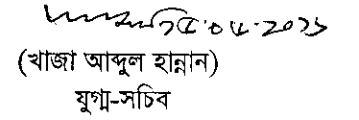 ২৫.০৪.২০২১
(খাজা আব্দুল হান্নান)
যুগ্ম-সচিব